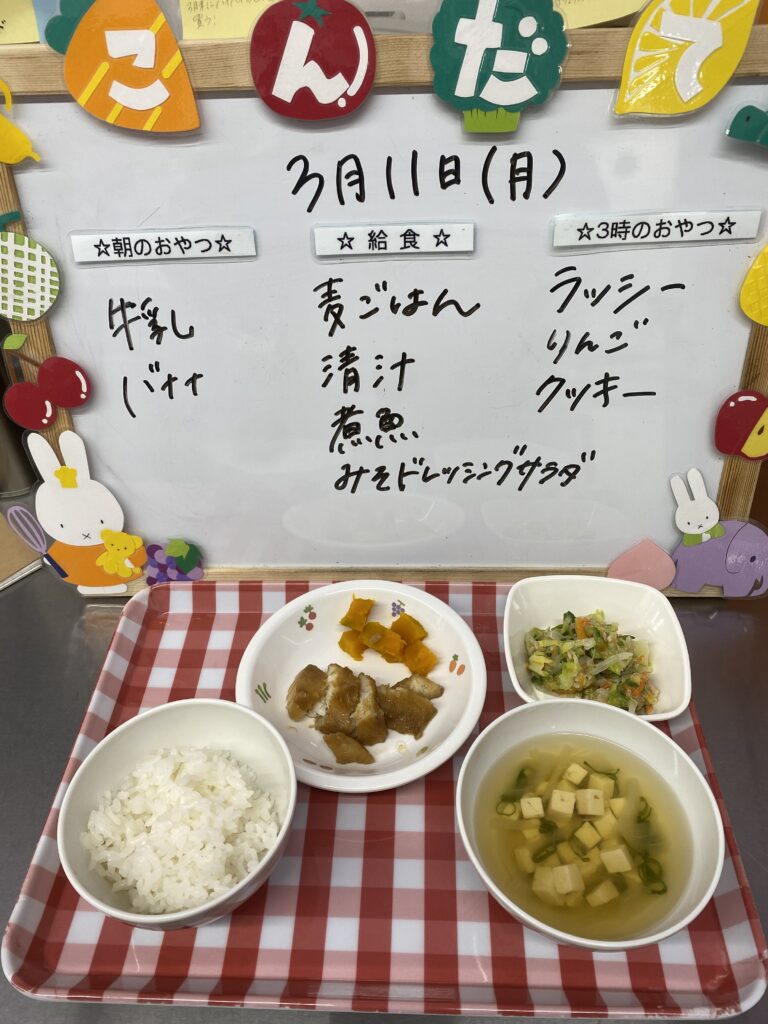 こんだて
3月11日(月)
☆朝のおやつ☆
牛乳
バナナ
☆給食☆
麦ごはん
清汁
煮魚
みそドレッシングサラダ
☆3時のおやつ☆
ラッシー
りんご
クッキー